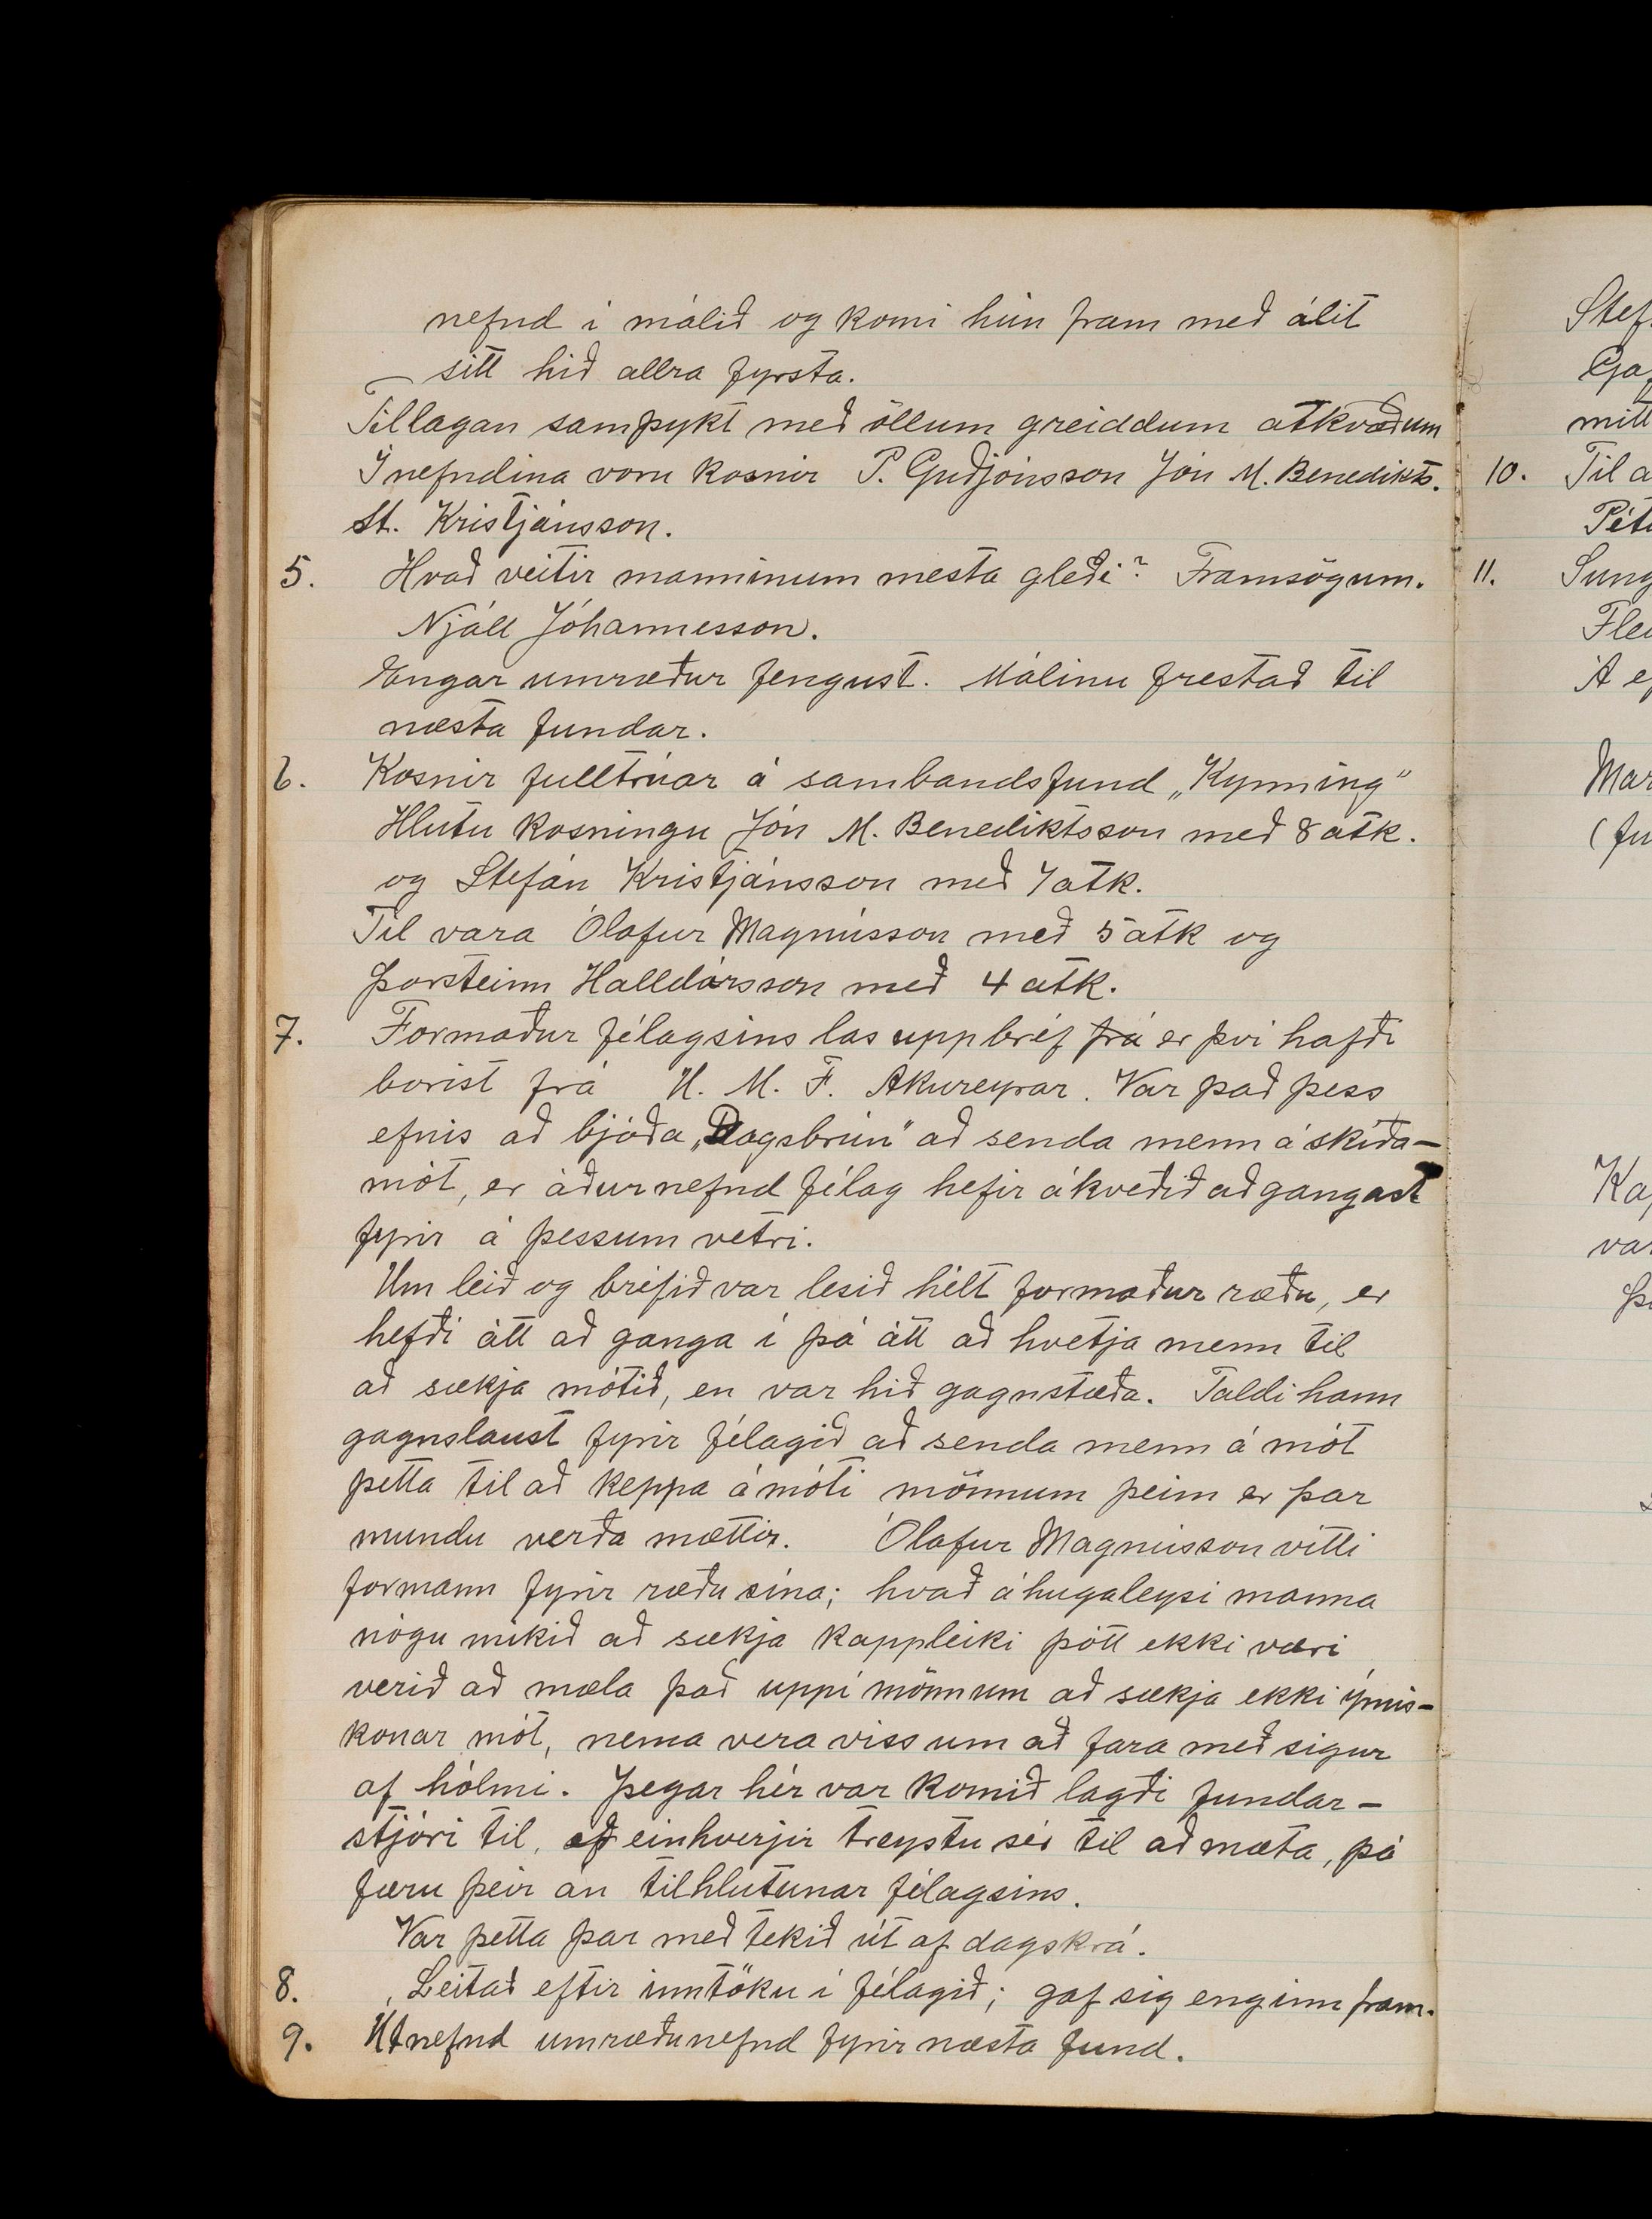 nefnd í málið og komi hún fram með álit
sitt hið allra fyrsta.
Tillagan samþykt með öllum greiddum atkvæðum
Í nefndina voru kosnir P. Guðjónsson Jón M. Benedikts.
St. Kristjánsson.
5. Hvað veitir manninum mesta gleði? Framsögum.
Njáll Jóhannesson.
Engar umræður fengust. Málinu frestað til
næsta fundar.
6. Kosnir fulltrúar á sambandsfund „Kynning“
Hlutu kosningu Jón M. Benediktsson með 8 atk.
og Stefán Kristjánsson með 7 atk.
Til vara Ólafur Magnússon með 5 atk og
Þorsteinn Halldórsson með 4 atk.
7. Formaður félagsins las upp bréf frá er því hafði
borist frá U. M. F. Akureyrar. Var það þess
efnis að bjóða „Dagsbrún“ að senda menn á skíða-
mót, er áðurnefnd félag hefir ákveðið að gangast
fyrir á þessum vetri.
Um leið og bréfið var lesið hélt formaður ræðu, er
hefði átt að ganga í þá átt að hvetja menn til
að sækja mótið, en var hið gagnstæða. Taldi hann
gagnslaust fyrir félagið að senda menn á mót
þetta til að keppa á móti mönnum þeim er þar
mundu verða mættir. Ólafur Magnússon vítti
formann fyrir ræðu sína; hvað áhugaleysi manna
nógu mikið að sækja kappleiki þótt ekki væri
verið að mæla það uppí mönnum að sækja ekki ýmis-
konar mót, nema vera viss um að fara með sigur
af hólmi. Þegar hér var komið lagði fundar-
stjóri til, ef einhverjir treystu sér til að mæta, þá
færu þeir án tilhlutunar félagsins.
Var þetta þar með tekið út af dagskrá.
8. Leitað eftir inntöku í félagið; gaf sig enginn fram.
9. Útnefnd umræðunefnd fyrir næsta fund.
10. Til a
11. Sung
Á ef